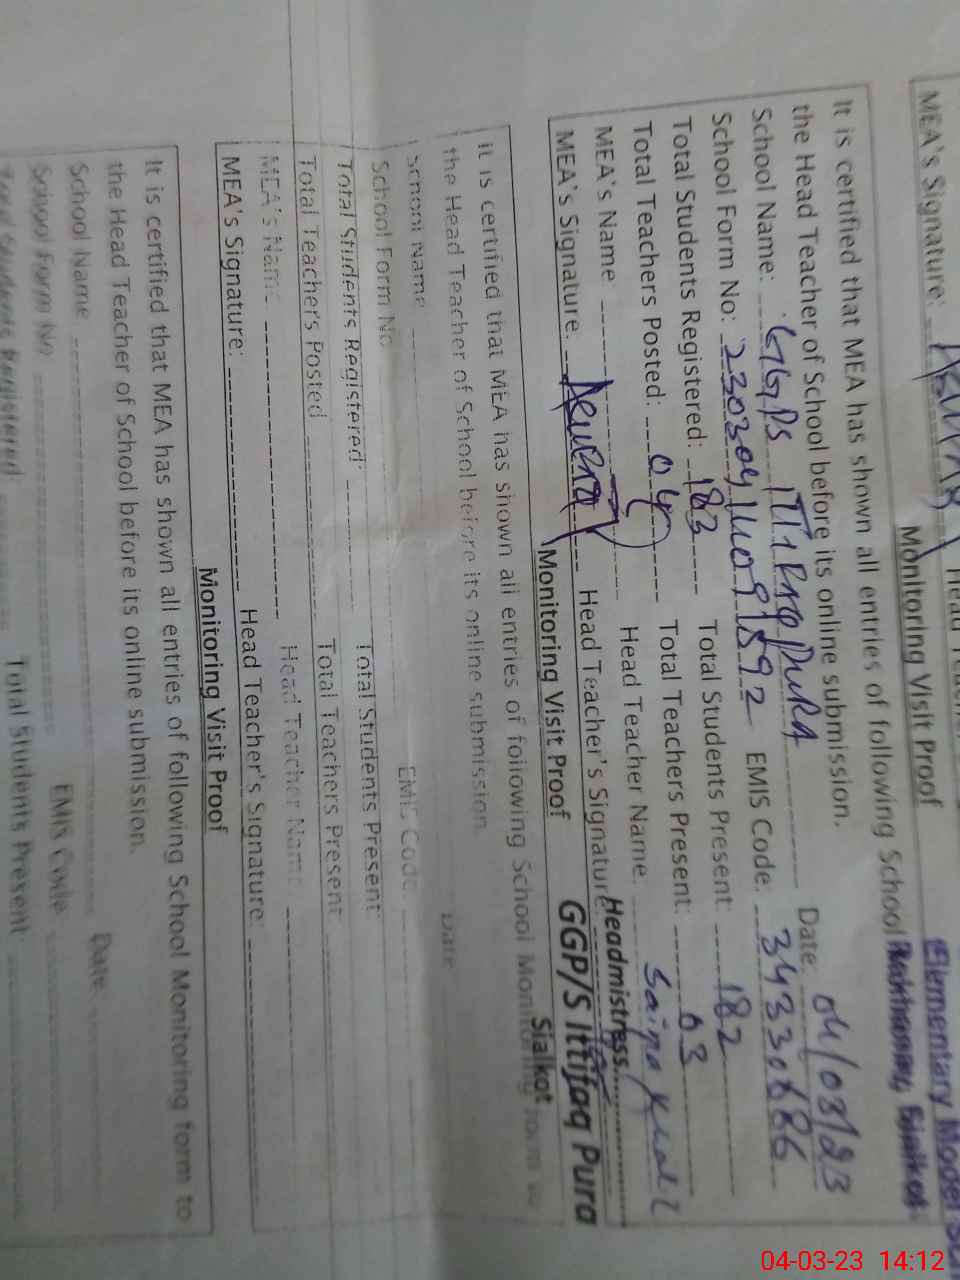 MEA's Signature:
Monitoring Visit Proof
Elementary Model
It is certified that MEA has shown all entries of following School
the Head Teacher of School before its online submission.
School Name: GGPS Date: 04/03/23
School Form No: EMIS Code: 34330686
Total Students Registered: 183 Total Students Present: 182
Total Teachers Posted: 04 Total Teachers Present: 03
MEA's Name Head Teacher Name: Saima
MEA's Signature: Head Teacher's Signature:
Headmistress
GGP/S Ittifaq Pura
Sialkot
Monitoring Visit Proof
It is certified that MEA has shown all entries of following School Monitoring form to
the Head Teacher of School before its online submission.
School Name Date
School Form No EMIS Code
Total Students Registered: Total Students Present:
Total Teachers Posted Total Teachers Present
MEA's Name Head Teacher Name
MEA's Signature: Head Teacher's Signature:
Monitoring Visit Proof
It is certified that MEA has shown all entries of following School Monitoring form to
the Head Teacher of School before its online submission.
School Name Date:
School Form No EMIS Code
Total Students Registered Total Students Present:
04-03-23 14:12